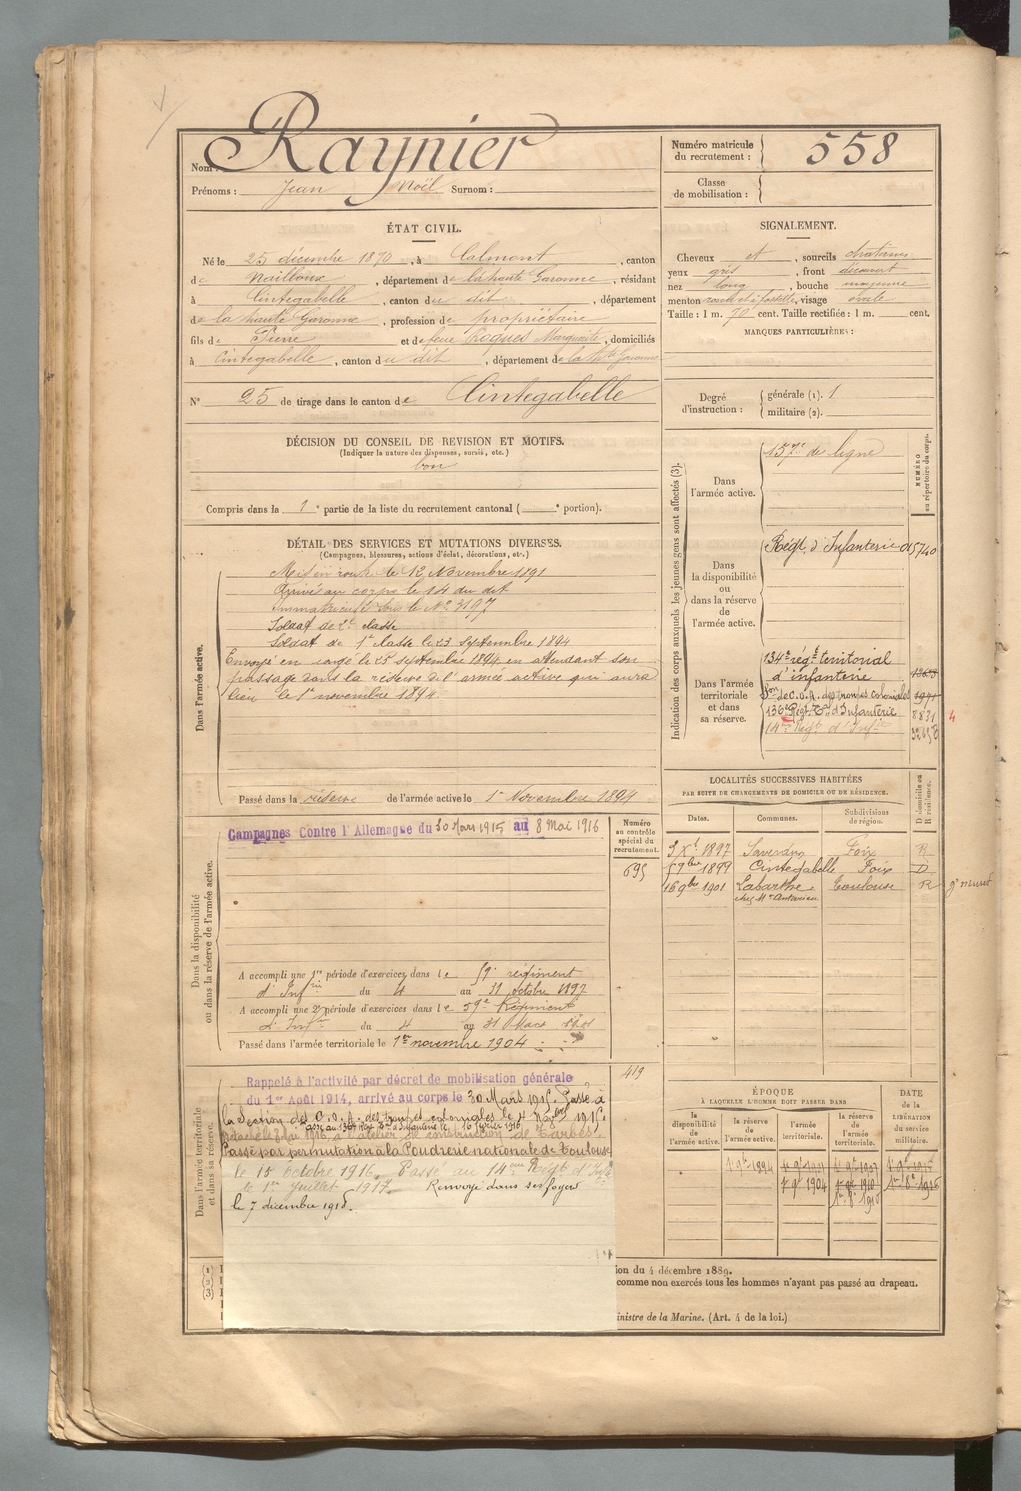 Nom : Raynier
Prénoms : Jean Noël Surnom :
Numéro matricule du recrutement : 558
Classe de mobilisation :
ÉTAT CIVIL.
Né le 25 décembre 1870, à Calmont, canton
de Nailloux, département de la haute Garonne, résidant
à Cintegabelle, canton du dit, département
de la haute Garonne, profession de propriétaire
fils de Pierre et de feue Roques Marguerite, domiciliés
à Cintegabelle, canton du dit, département de la Hte Garonne
N° 25 de tirage dans le canton de Cintegabelle
SIGNALEMENT.
Cheveux et, sourcils chatains
yeux gris, front découvert
nez long, bouche moyenne
menton rond et à fossette, visage ovale
Taille : 1 m. 70 cent. Taille rectifiée : 1 m. cent.
MARQUES PARTICULIÈRES :
Degré d'instruction : générale (1). 1
militaire (2).
DÉCISION DU CONSEIL DE REVISION ET MOTIFS.
(Indiquer la nature des dispenses, sursis, etc.)
bon
Compris dans la 1e partie de la liste du recrutement cantonal ( e portion).
DÉTAIL DES SERVICES ET MUTATIONS DIVERSES.
(Campagnes, blessures, actions d'éclat, décorations, etc.)
Dans l'armée active.
Mis en route le 12 Novembre 1891
Arrivé au corps le 14 du dit
Immatriculé sous le N° 3197
Soldat de 2e classe
Soldat de 1e classe le 23 Septembre 1894
Envoyé en congé le 25 septembre 1894 en attendant son
passage dans la réserve de l'armée active qui aura
lieu le 1er novembre 1894.
Passé dans la réserve de l'armée active le 1er Novembre 1894
Indication des corps auxquels les jeunes gens sont affectés (3).
NUMÉRO au répertoire du corps.
Dans l'armée active.
157e de ligne
Dans la disponibilité ou dans la réserve de l'armée active.
Régt d'Infanterie 015740
Dans l'armée territoriale et dans sa réserve.
134e régt territorial
d'infanterie
Son de C.O.A. des troupes coloniales
136e Régt Tal d'Infanterie 8831 4
14e Régt d'Infie
LOCALITÉS SUCCESSIVES HABITÉES
PAR SUITE DE CHANGEMENTS DE DOMICILE OU DE RÉSIDENCE.
D domicile ou R résidence.
Dates. Communes. Subdivisions de région.
5 Xbre 1897 Saverdun Foix R
5 9bre 1899 Cintegabelle Foix D
16 9bre 1901 Labarthe Toulouse R
Dans la disponibilité ou dans la réserve de l'armée active.
Campagnes Contre l'Allemagne du 30 Mars 1915 au 8 Mai 1916
Numéro au contrôle spécial du recrutement.
695
A accompli une 1re période d'exercices dans le 59e régiment
d'Infrie du 4 au 31 octobre 1897
A accompli une 2e période d'exercices dans le 59e Régiment
d'Infie du 4 au 31 Mars
Passé dans l'armée territoriale le 1er novembre 1904
419
Dans l'armée territoriale et dans sa réserve.
Rappelé à l'activité par décret de mobilisation générale
du 1er Août 1914, arrivé au corps le 30 Mars 1915. Passé à
la Section des C.O.A. des troupes coloniales le 4 Novbre 1915.
Passé au 136e Régt Tal d'Infanterie le 16 février 1916
Détaché le 8 Mai 1916, à l'atelier de construction de Tarbes.
Passé par permutation à la Poudrerie nationale de Toulouse
le 15 octobre 1916. Passé au 14eme Régt d'Infie
le 1er Juillet 1917. Renvoyé dans ses foyers
le 7 décembre 1918.
ÉPOQUE
À LAQUELLE L'HOMME DOIT PASSER DANS
DATE de la LIBÉRATION du service militaire.
la disponibilité de l'armée active.
la réserve de l'armée active.
l'armée territoriale.
la réserve de l'armée territoriale.
1er 9bre 1894
1er 9bre 1904
(1)
(2)
(3)
ion du 4 décembre 1889.
comme non exercés tous les hommes n'ayant pas passé au drapeau.
inistre de la Marine. (Art. 4 de la loi.)